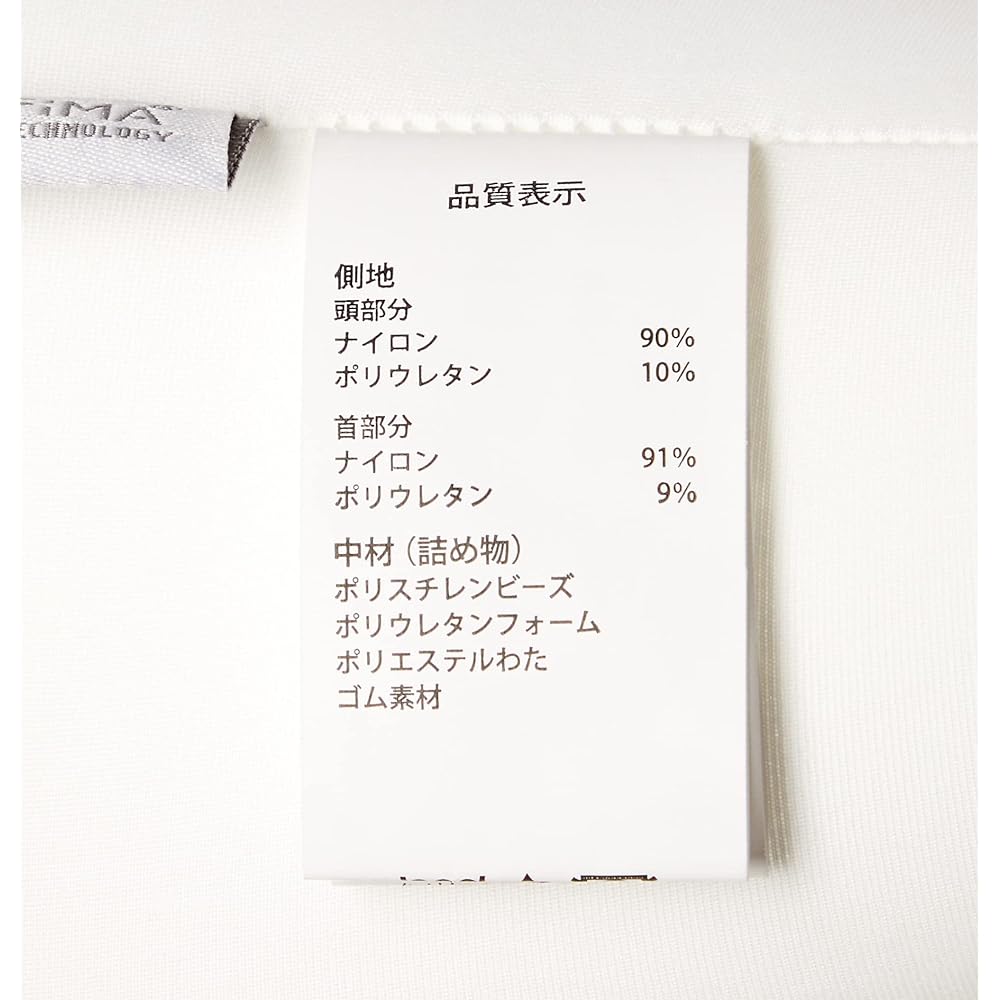 TECHNOLOGY
品質表示
側地
頭部分
ナイロン 90%
ポリウレタン 10%
首部分
ナイロン 91%
ポリウレタン 9%
中材(詰め物)
ポリスチレンビーズ
ポリウレタンフォーム
ポリエステルわた
ゴム素材